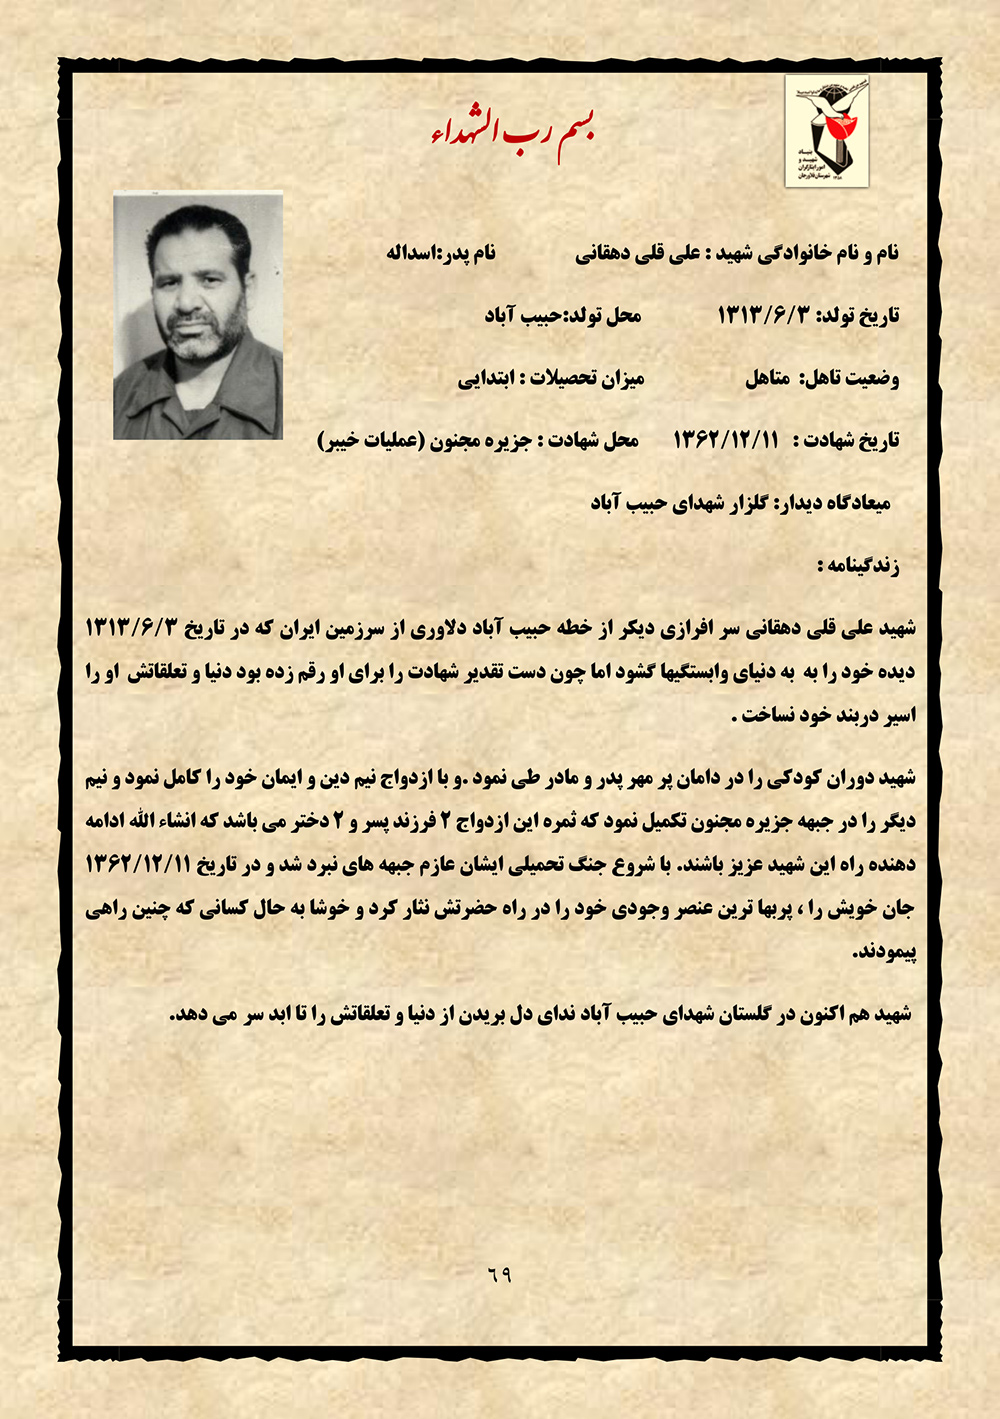 بسم رب الشهداء
بنیاد
شهید و
امور ایثارگران
شهرستان فلاورجان
نام و نام خانوادگی شهید : علی قلی دهقانی نام پدر:اسداله
تاریخ تولد: ۱۳۱۳/۶/۳ محل تولد:حبیب آباد
وضعیت تاهل: متاهل میزان تحصیلات : ابتدایی
تاریخ شهادت : ۱۳۶۲/۱۲/۱۱ محل شهادت : جزیره مجنون (عملیات خیبر)
میعادگاه دیدار: گلزار شهدای حبیب آباد
زندگینامه :
شهید علی قلی دهقانی سر افرازی دیکر از خطه حبیب آباد دلاوری از سرزمین ایران که در تاریخ ۱۳۱۳/۶/۳
دیده خود را به به دنیای وابستگیها گشود اما چون دست تقدیر شهادت را برای او رقم زده بود دنیا و تعلقاتش او را
اسیر دربند خود نساخت .
شهید دوران کودکی را در دامان پر مهر پدر و مادر طی نمود .و با ازدواج نیم دین و ایمان خود را کامل نمود و نیم
دیگر را در جبهه جزیره مجنون تکمیل نمود که ثمره این ازدواج ۲ فرزند پسر و ۲ دختر می باشد که انشاء الله ادامه
دهنده راه این شهید عزیز باشند. با شروع جنگ تحمیلی ایشان عازم جبهه های نبرد شد و در تاریخ ۱۳۶۲/۱۲/۱۱
جان خویش را ، پربها ترین عنصر وجودی خود را در راه حضرتش نثار کرد و خوشا به حال کسانی که چنین راهی
پیمودند.
شهید هم اکنون در گلستان شهدای حبیب آباد ندای دل بریدن از دنیا و تعلقاتش را تا ابد سر می دهد.
٦٩